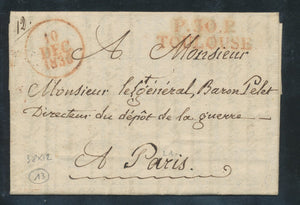 12.
10
DEC
1830
P.30.P.
TOULOUSE
A Monsieur
Monsieur le Lt général, Baron Pelet
Directeur du dépôt de la guerre
A Paris.
13